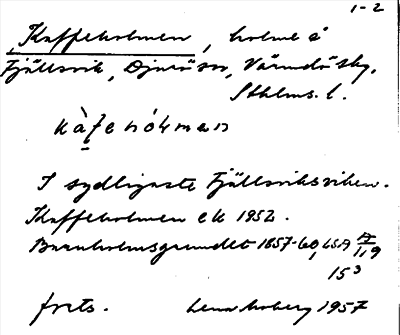 1-2
Kaffeholmen, holme å
Fjällsvik, Djurö sn, Värmdö skg,
Sthlms. l.
kàfehólman
I sydligaste Fjällsviksviken.
Kaffeholmen ek 1952.
Barnholmsgrundet 1857-60, LSA A/119
15³
forts. Lena Moberg 1957